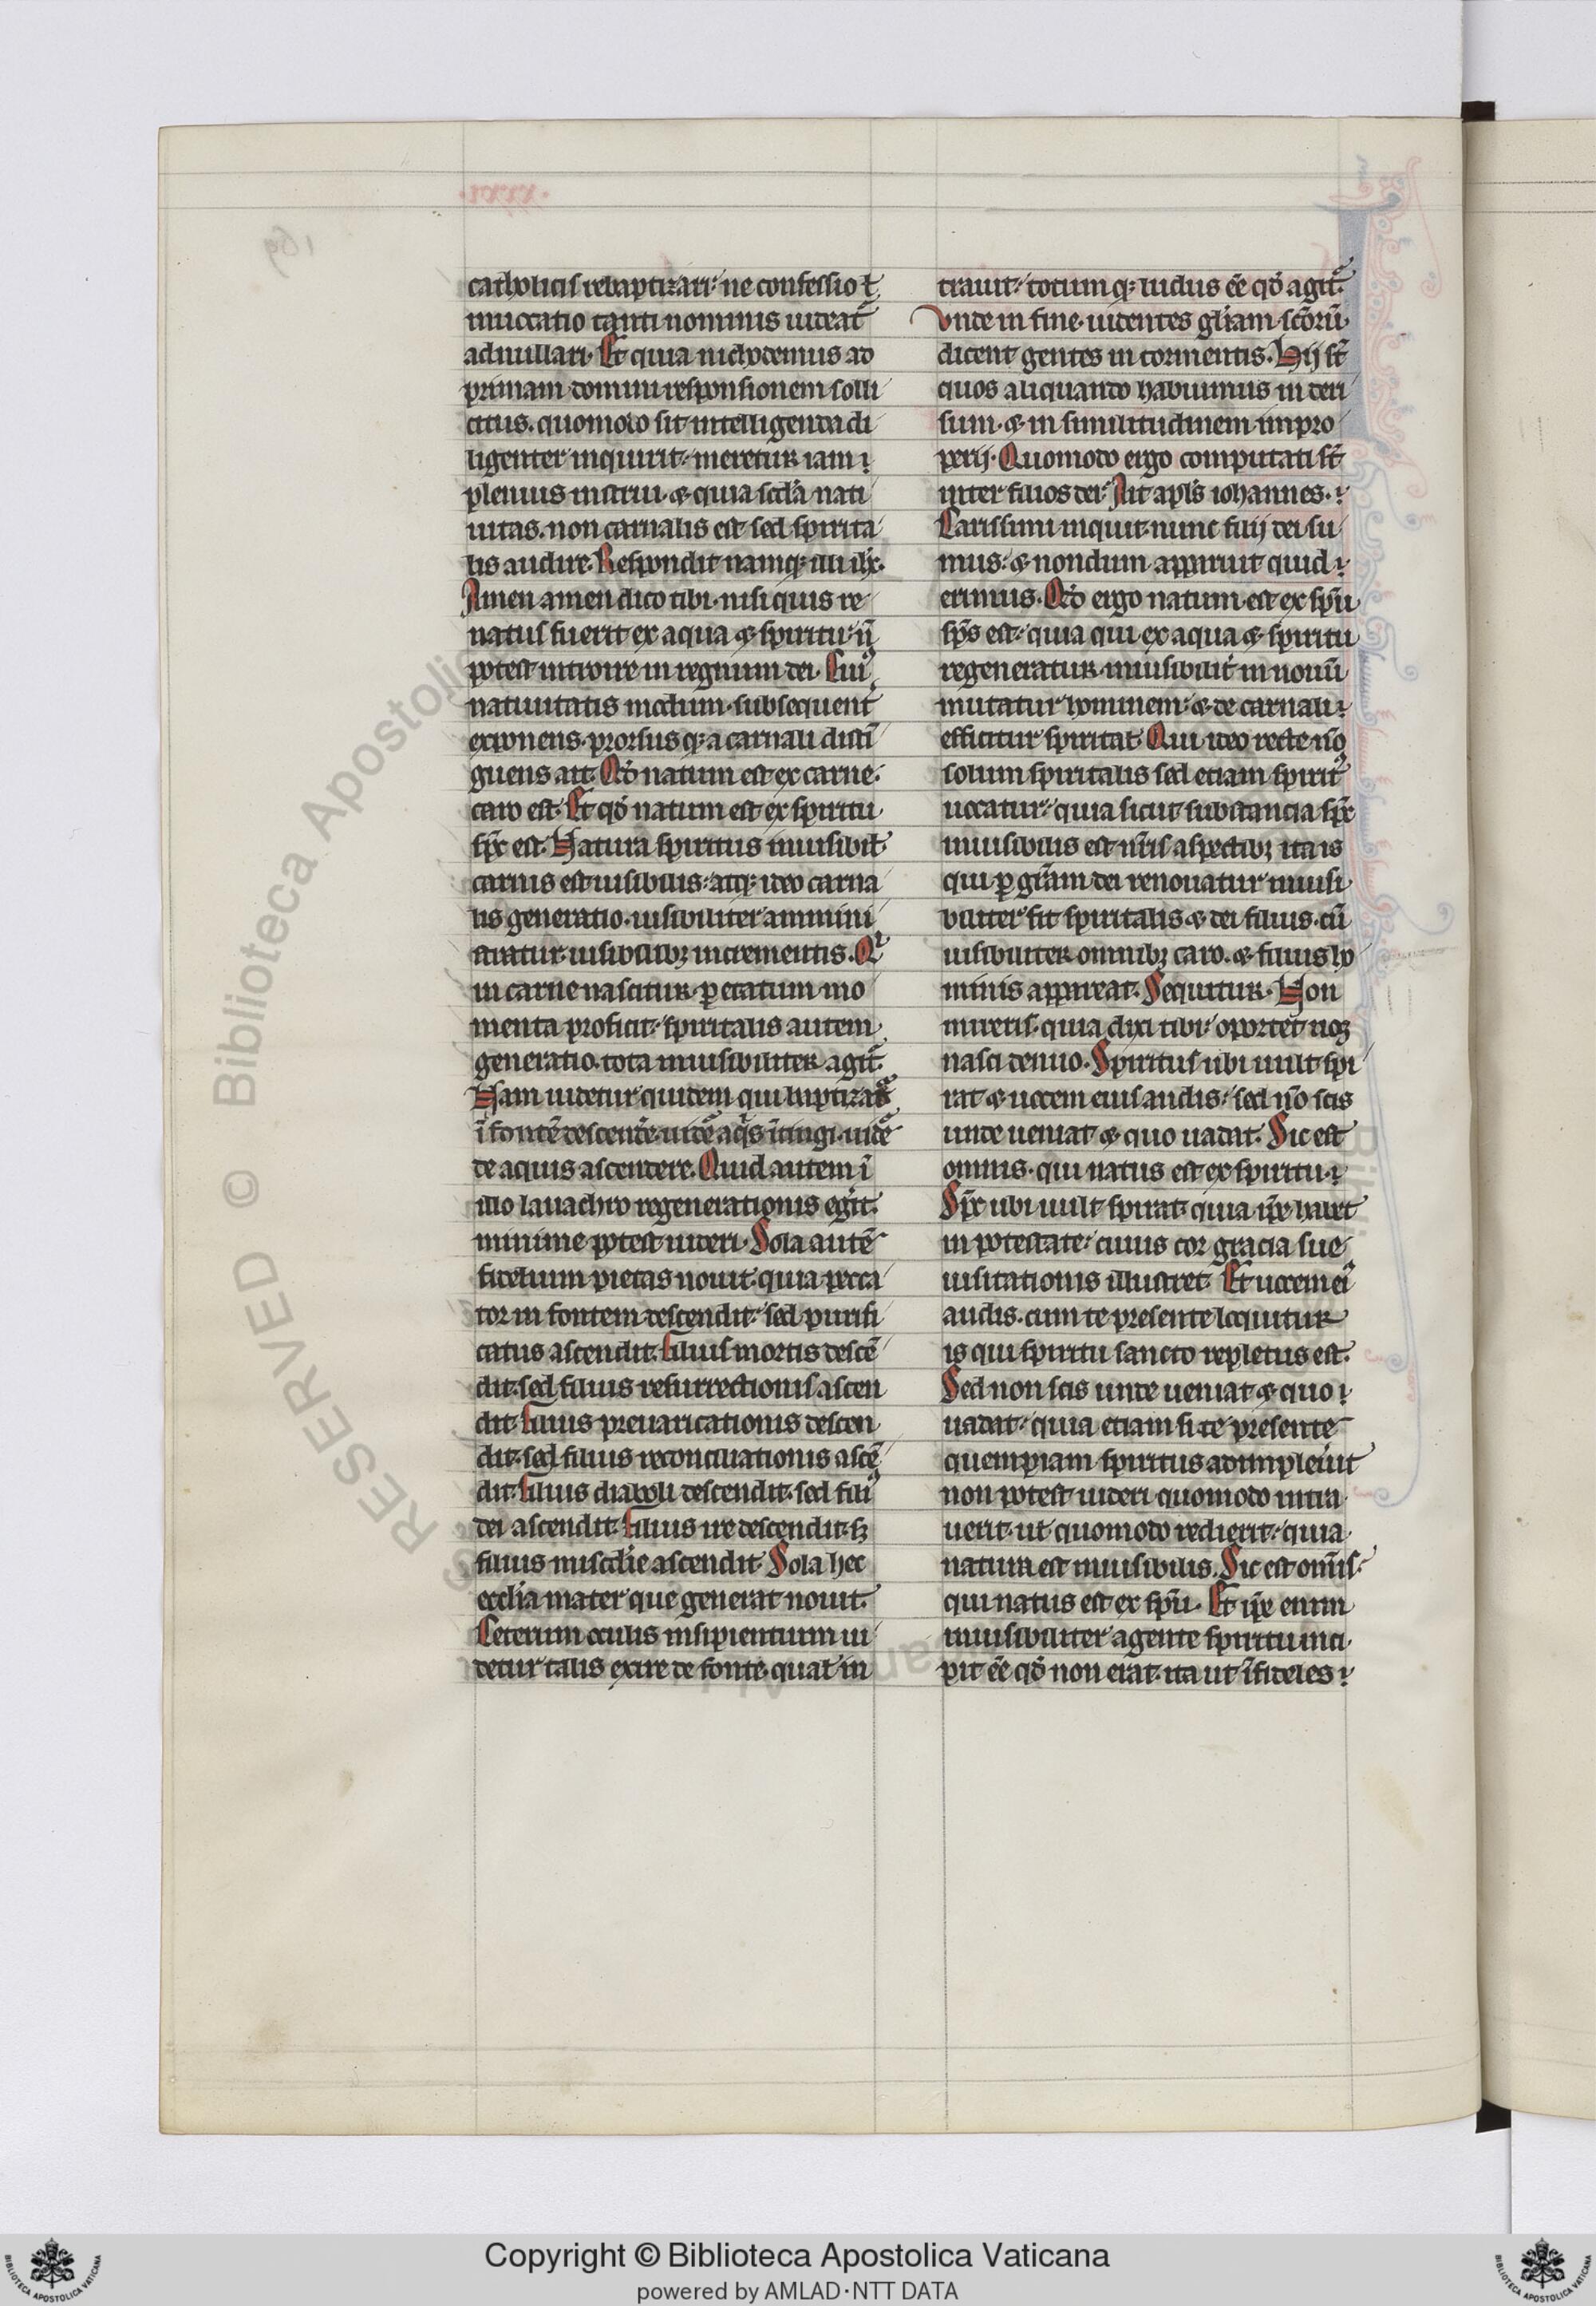 catholicis rebaptizari: ne confessio ł
inuocatio tanti nominis uideat᷑
adnullari. Et quia nichodemus ad
primam domini responsionem solli
citus. quomodo sit intelligenda di
ligenter inquirit: meretur iam
plenius instrui. & quia scd̅a nati
uitas. non carnalis est sed spirita
lis audire. Respondit namq; illi ih̅c.
Amen amen dico tibi. nisi quis re
natus fuerit ex aqua & spiritu: n̅
potest introire in regnum dei. Cuiꝰ
natiuitatis modum. subsequent᷑
exponens. prorsus q; a carnali disti̅
guens ait. Qd̅ natum est ex carne.
caro est. Et qd̅ natum est ex spiritu
sp̅c est. Natura spiritus inuisibil̅.
carnis est uisibilis: atq; ideo carna
lis generatio. uisibiliter ammini
stratur. uisibilibꝫ incrementis. Qⁱ
in carne nascitur. ꝑ etatum mo
menta proficit: spiritalis autem
generatio. tota inuisibiliter agit᷑.
Nam uidetur quidem qui baptizat᷑
i̅ fonte̅ descende̅. uide᷑ aq̅s i̅tingi. uide᷑
de aquis ascendere. Quid autem i̅
illo lauachro regenerationis egit.
minime potest uideri. Sola aute̅
fidelium pietas nouit. quia pecca
tor in fontem descendit: sed purifi
catus ascendit. Filius mortis desce̅
dit. sed filius resurrectionis ascen
dit. Filius preuaricationis descen
dit. sed filius reconciliationis asce̅
dit. Filius diaboli descendit. sed filiꝰ
dei ascendit. Filius ire descendit. sꝫ
filius misc̅die ascendit. Sola hec
eccl̅ia mater que generat nouit.
Ceterum oculis insipientium ui
detur talis exire de fonte. qual̅ in
trauit: totum q; ludus e̅e qd̅ agit᷑.
Vnde in fine. uidentes gl̅iam sc̅oru̅
dicent gentes in tormentis. Hij st̅
quos aliquando habuimus in deri
sum. & in similitudinem impro
perij. Quomodo ergo computati st̅
inter filios dei: Ait apl̅s iohannes.
Carissimi inquit. nunc filij dei su
mus: & nondum apparuit quid
erimus. Qd̅ ergo natum est ex sp̅u
sp̅s est: quia qui ex aqua & spiritu
regeneratur. inuisibilit᷑ in nouu̅
mutatur hominem: & de carnali
efficitur spiritał. Qui ideo recte no̅
solum spiritalis sed etiam spiritꝰ
uocatur: quia sicut substancia sp̅c
inuisibilis est nr̅is aspectibꝫ ita is
qui ꝑ gr̅am dei renouatur inuisi
biliter fit spiritalis & dei filius. cu̅
uisibiliter omnibꝫ caro. & filius ho
minis appareat. Sequitur. Non
mireris. quia dixi tibi: oportet uoꝫ
nasci denuo. Spiritus ubi uult spi
rat & uocem eius audis: sed no̅ scis
unde ueniat & quo uadat. Sic est
omnis. qui natus est ex spiritu.
Sp̅c ubi uult spirat. quia ip̅e habet
in potestate: cuius cor gracia sue
uisitationis illustret. Et uocem eiꝰ
audis. cum te presente loquitur
is qui spiritu sancto repletus est.
Sed non scis unde ueniat & quo
uadat: quia etiam si te presente
quempiam spiritus adimpleuit
non potest uideri quomodo intra
uerit. ut quomodo redierit: quia
natura est inuisibilis. Sic est om̅is.
qui natus est ex sp̅u. Et ip̅e enim
inuisibiliter agente spiritu inci
pit e̅e qd̅ non erat. ita ut i̅fideles
RESERVED © Biblioteca Apostolica
Copyright © Biblioteca Apostolica Vaticana
powered by AMLAD·NTT DATA